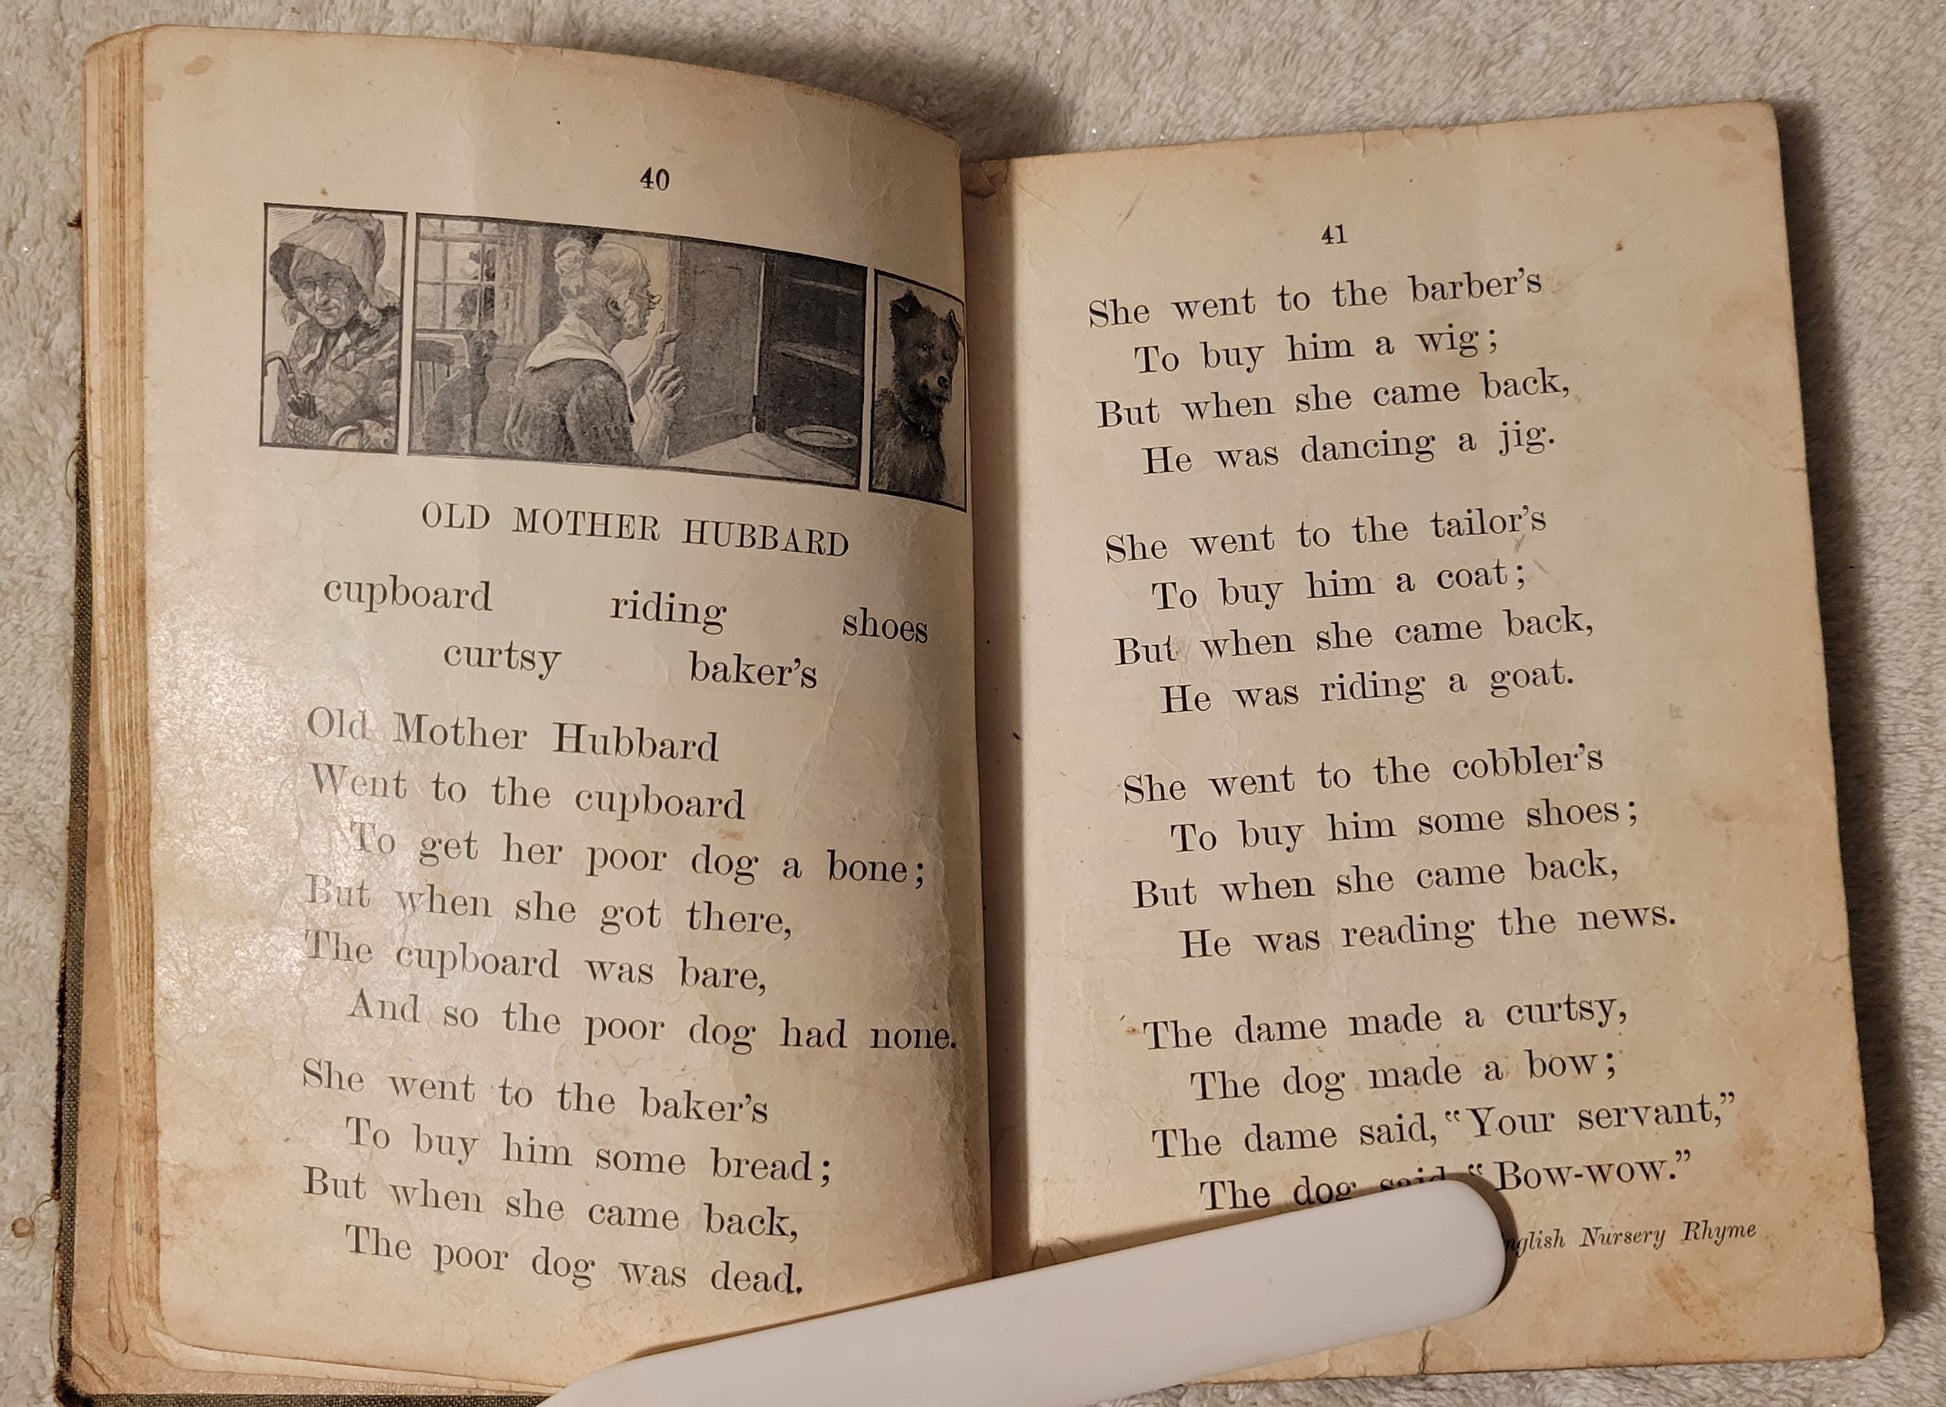 40
OLD MOTHER HUBBARD
cupboard riding shoes
curtsy baker's
Old Mother Hubbard
Went to the cupboard
To get her poor dog a bone;
But when she got there,
The cupboard was bare,
And so the poor dog had none.
She went to the baker's
To buy him some bread;
But when she came back,
The poor dog was dead.
41
She went to the barber's
To buy him a wig;
But when she came back,
He was dancing a jig.
She went to the tailor's
To buy him a coat;
But when she came back,
He was riding a goat.
She went to the cobbler's
To buy him some shoes;
But when she came back,
He was reading the news.
The dame made a curtsy,
The dog made a bow;
The dame said, "Your servant,"
The dog said, "Bow-wow."
nglish Nursery Rhyme